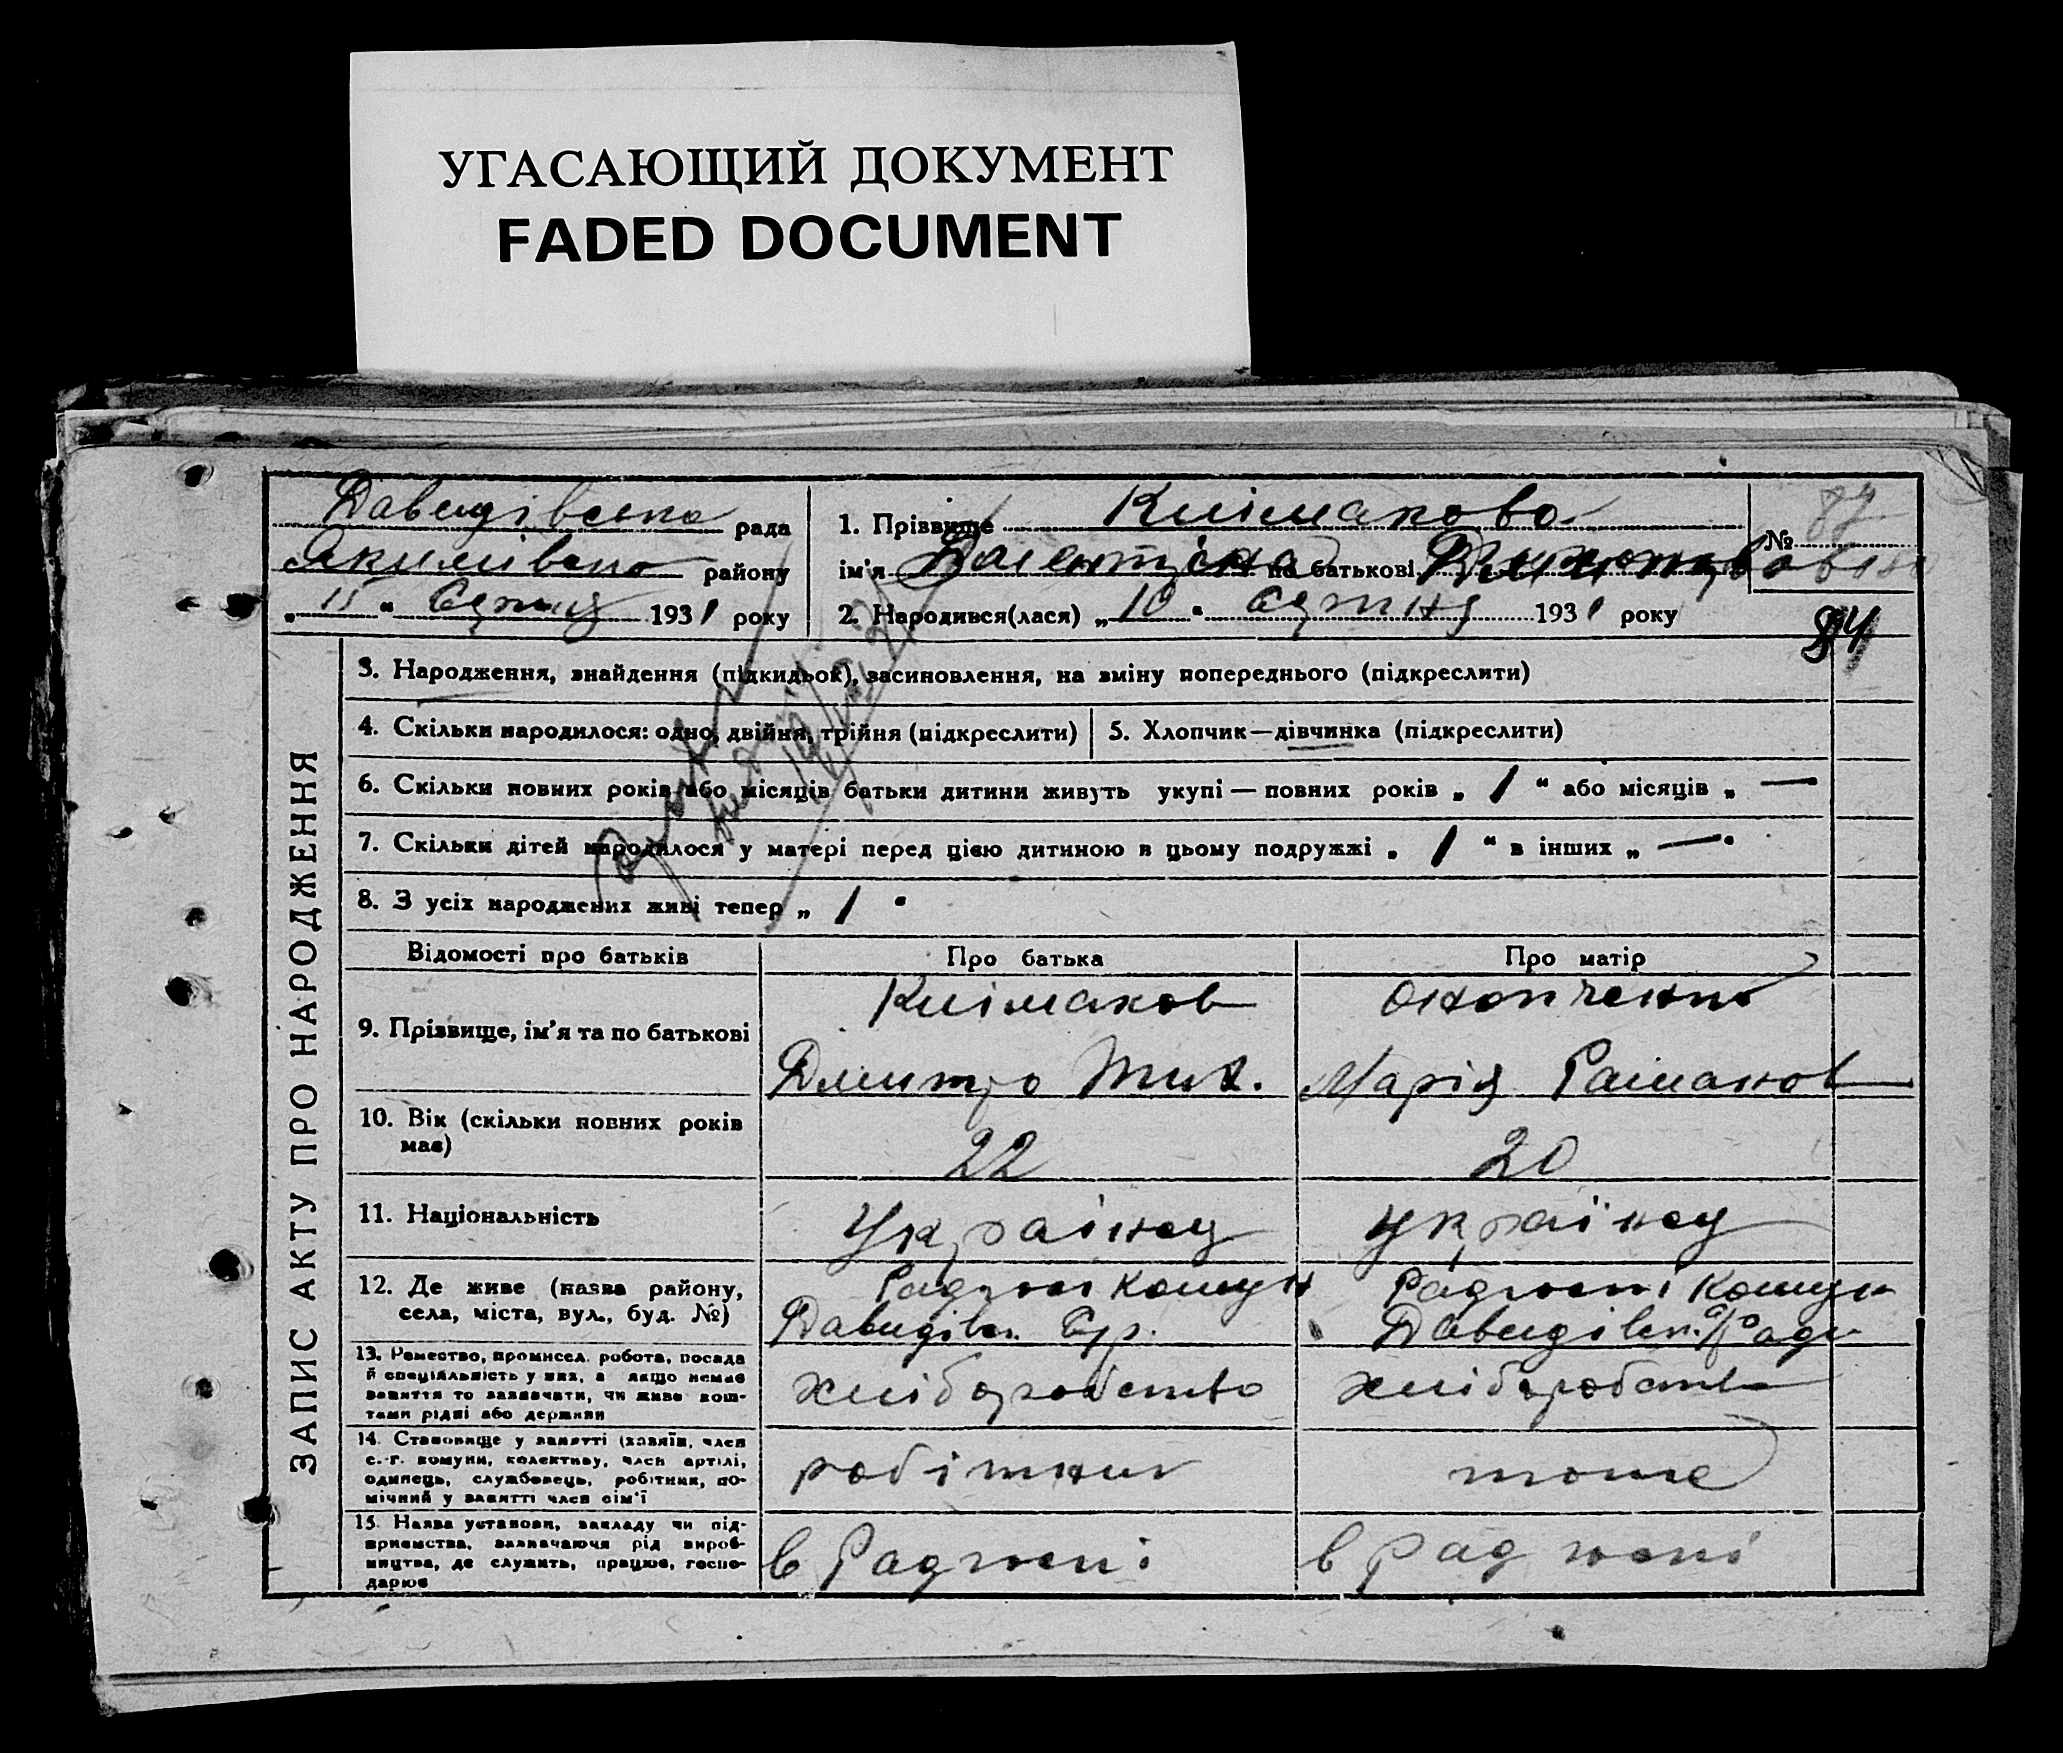 УГАСАЮЩИЙ ДОКУМЕНТ
FADED DOCUMENT
Давидівська рада
Якимівсько району
„ 15 “ Серпня 1931 року
1. Прізвище Клімакова
ім'я Валентіна по батькові
2. Народився(лася) „ 10 “ Серпня 1931 року
№ 87
84
ЗАПИС АКТУ ПРО НАРОДЖЕННЯ
3. Народження, знайдення (підкидьок), засиновлення, на зміну попереднього (підкреслити)
4. Скільки народилося: одно, двійня, трійня (підкреслити)
5. Хлопчик — дівчинка (підкреслити)
6. Скільки повних років або місяців батьки дитини живуть укупі — повних років „ 1 “ або місяців „ —
7. Скільки дітей народилося у матері перед цією дитиною в цьому подружжі „ 1 “ в інших „ — “
8. З усіх народжених живі тепер „ 1 “
Відомості про батьків
Про батька
Про матір
9. Прізвище, ім'я та по батькові
Клімаков
Дмитро Тих.
Онопченко
Марія Раманов
10. Вік (скільки повних років
має)
22
20
11. Національність
Українец
Українец
12. Де живе (назва району,
села, міста, вул., буд. №)
Радгосп Комун
Давидівск. Ср.
Радгоспі Комун
Давидівск. с/Ради
13. Ремество, промисел, робота, посада
й спеціяльність у них, а якщо немає
заняття то зазначати, чи живе кош-
тами рідні або держави
хліборобство
хліборобство
14. Становище у занятті (хазяїн, член
с.-г. комуни, колективу, член артілі,
одинець, службовець, робітник, по-
мічний у занятті член сім'ї
робітник
тоже
15. Назва установи, закладу чи під-
приємства, зазначаючи рід вироб-
ництва, де служить, працює, госпо-
дарює
в Радгоспі
в Радгоспі